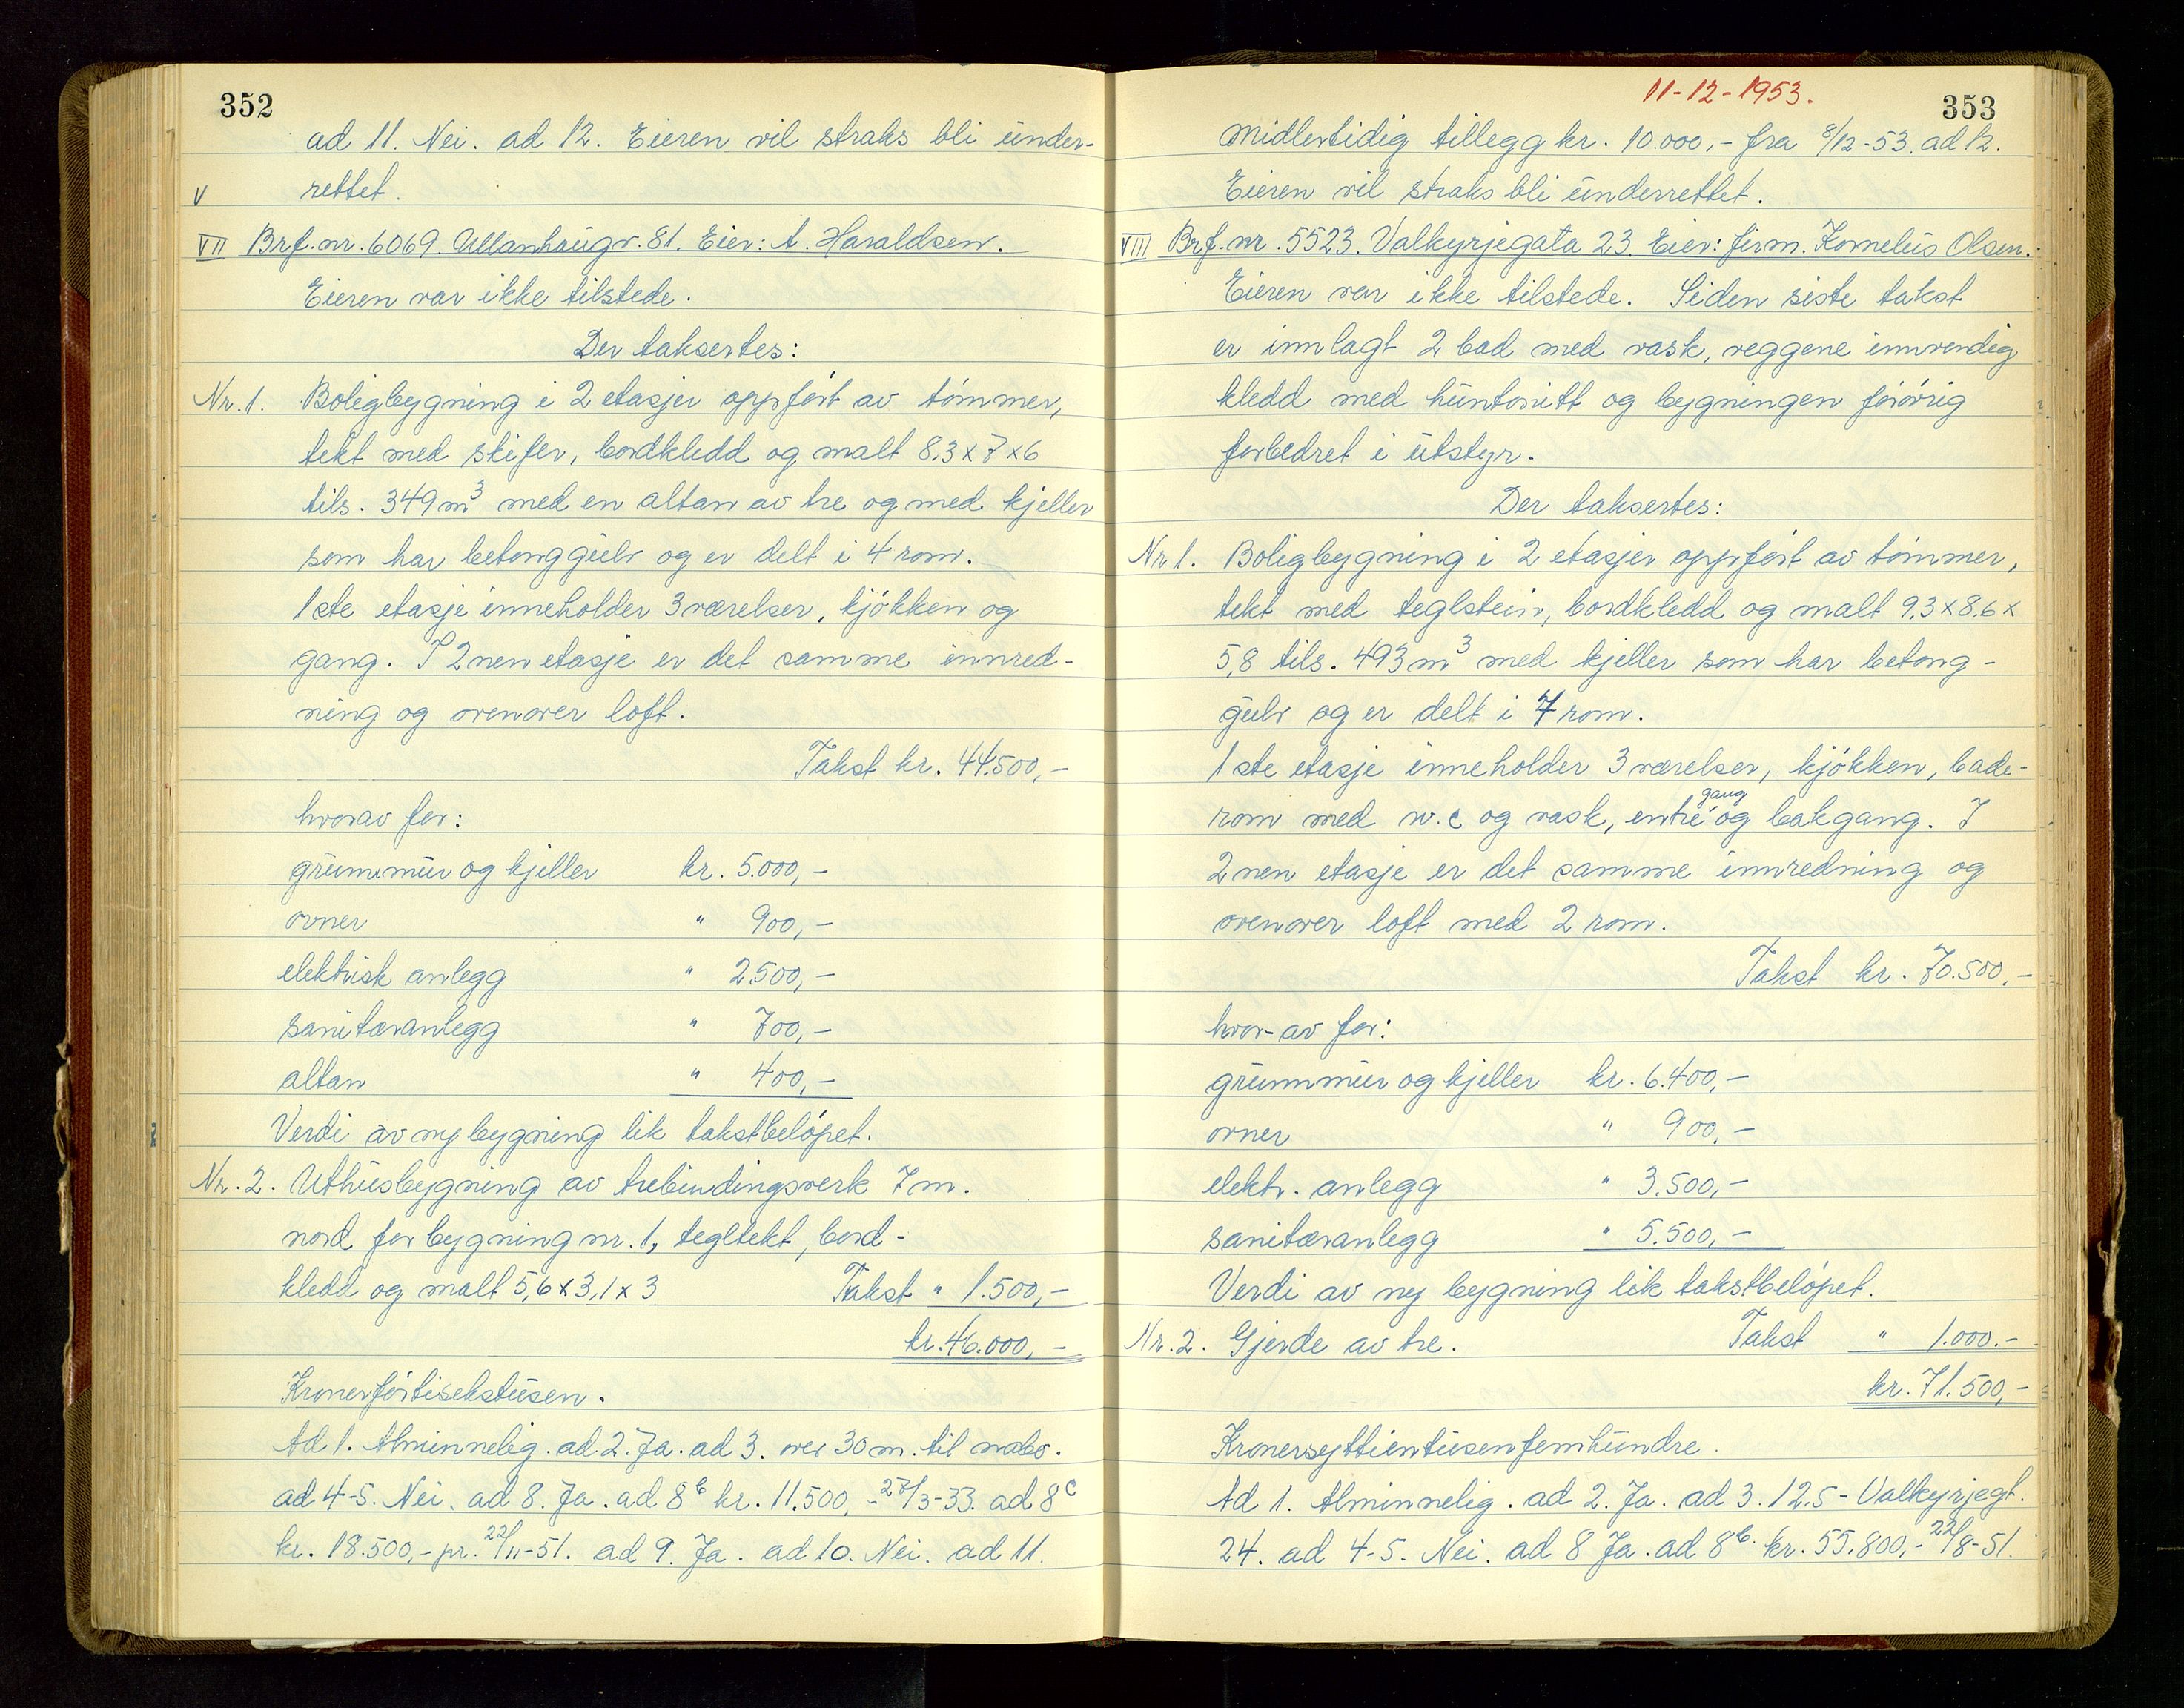 352
ad 11. Nei. ad 12. Eieren vil straks bli under-
V rettet.
VII Brf. nr. 6069. Ullanhaugv. 81. Eier: A. Haraldsen.
Eieren var ikke tilstede.
Der taksertes:
Nr. 1. Boligbygning i 2 etasjer oppført av tømmer,
tekt med skifer, bordkledd og malt 8.3 x 7 x 6
tils. 349 m³ med en altan av tre og med kjeller
som har betonggulv og er delt i 4 rom.
1ste etasje inneholder 3 værelser, kjøkken og
gang. I 2nen etasje er det samme innred-
ning og ovenover loft.
Takst kr. 44.500,-
hvorav for:
grunnmur og kjeller kr. 5.000,-
ovner " 900,-
elektrisk anlegg " 2500,-
sanitæranlegg " 700,-
altan " 400,-
Verdi av ny bygning lik takstbeløpet.
Nr. 2. Uthusbygning av trebindingsverk 7 m.
nord for bygning nr. 1, tegltekt, bord-
kledd og malt 5,6 x 3,1 x 3 Takst " 1.500,-
kr. 46.000,-
Kronerførtisekstusen.
Ad 1. Alminnelig. ad 2. Ja. ad 3. over 30 m. til nabo.
ad 4-5. Nei. ad 8. Ja. ad 8b kr. 11.500,- 27/3-33. ad 8c
kr. 18.500,- pr. 22/11-51. ad 9. Ja. ad 10. Nei. ad 11.
11-12-1953.
353
Midlertidig tillegg kr. 10.000,- fra 8/12-53. ad 12.
Eieren vil straks bli underrettet.
VIII Brf. nr. 5523. Valkyrjegata 23. Eier: firm. Kornelius Olsen.
Eieren var ikke tilstede. Siden siste takst
er innlagt 2 bad med vask, veggene innvendig
kledd med huntonitt og bygningen forøvrig
forbedret i utstyr.
Der taksertes:
Nr 1. Boligbygning i 2 etasjer oppført av tømmer,
tekt med teglstein, bordkledd og malt 9.3 x 8.6 x
5,8 tils. 493 m³ med kjeller som har betong-
gulv og er delt i 7 rom.
1ste etasje inneholder 3 værelser, kjøkken, bade-
rom med w.c og vask, entré gang og bakgang. I
2nen etasje er det samme innredning og
ovenover loft med 2 rom.
Takst kr. 70.500,-
hvor-av for:
grunnmur og kjeller kr. 6.400,-
ovner " 900,-
elektr. anlegg " 3.500,-
sanitæranlegg " 5.500,-
Verdi av ny bygning lik takstbeløpet.
Nr. 2. Gjerde av tre. Takst " 1.000.-
kr. 71.500,-
Kronersyttientusenfemhundre.
Ad 1. Alminnelig. ad 2. Ja. ad 3. 12.5 - Valkyrjegt.
24. ad 4-5. Nei. ad 8 Ja. ad 8b. kr. 55.800,- 22/8-51.